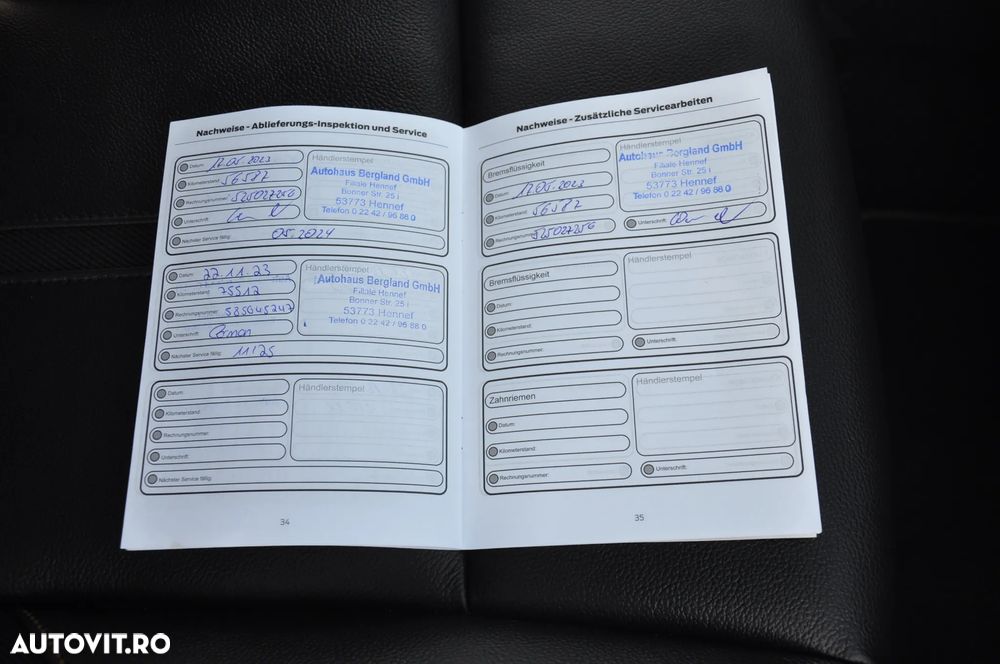 Nachweise - Ablieferungs-Inspektion und Service
Datum: 17.05.2023
Kilometerstand: 56587
Rechnungsnummer: 525027256
Unterschrift:
Nächster Service fällig: 05.2024
Händlerstempel
Autohaus Bergland GmbH
Filiale Hennef
Bonner Str. 25 i
53773 Hennef
Telefon 0 22 42 / 96 88 0
Datum: 22.11.23
Kilometerstand: 75512
Rechnungsnummer: 585045247
Unterschrift:
Nächster Service fällig: 11/25
Händlerstempel
Autohaus Bergland GmbH
Filiale Hennef
Bonner Str. 25 i
53773 Hennef
Telefon 0 22 42 / 96 88 0
Datum:
Kilometerstand:
Rechnungsnummer:
Unterschrift:
Nächster Service fällig:
Händlerstempel
34
Nachweise - Zusätzliche Servicearbeiten
Bremsflüssigkeit
Datum: 17.05.2023
Kilometerstand: 56587
Rechnungsnummer: 525027256
Händlerstempel
Autohaus Bergland GmbH
Filiale Hennef
Bonner Str. 25 i
53773 Hennef
Telefon 0 22 42 / 96 88 0
Unterschrift:
Bremsflüssigkeit
Datum:
Kilometerstand:
Rechnungsnummer:
Händlerstempel
Unterschrift:
Zahnriemen
Datum:
Kilometerstand:
Rechnungsnummer:
Händlerstempel
Unterschrift:
35
AUTOVIT.RO